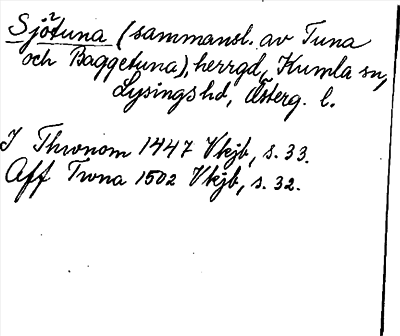 Sjötuna (sammansl. av Tuna
och Baggetuna), herrgd, Kumla sn,
Lysings hd, Österg. l.
J Thwnom 1447 Vkjb, s. 33.
Aff Twna 1502 Vkjb, s. 32.